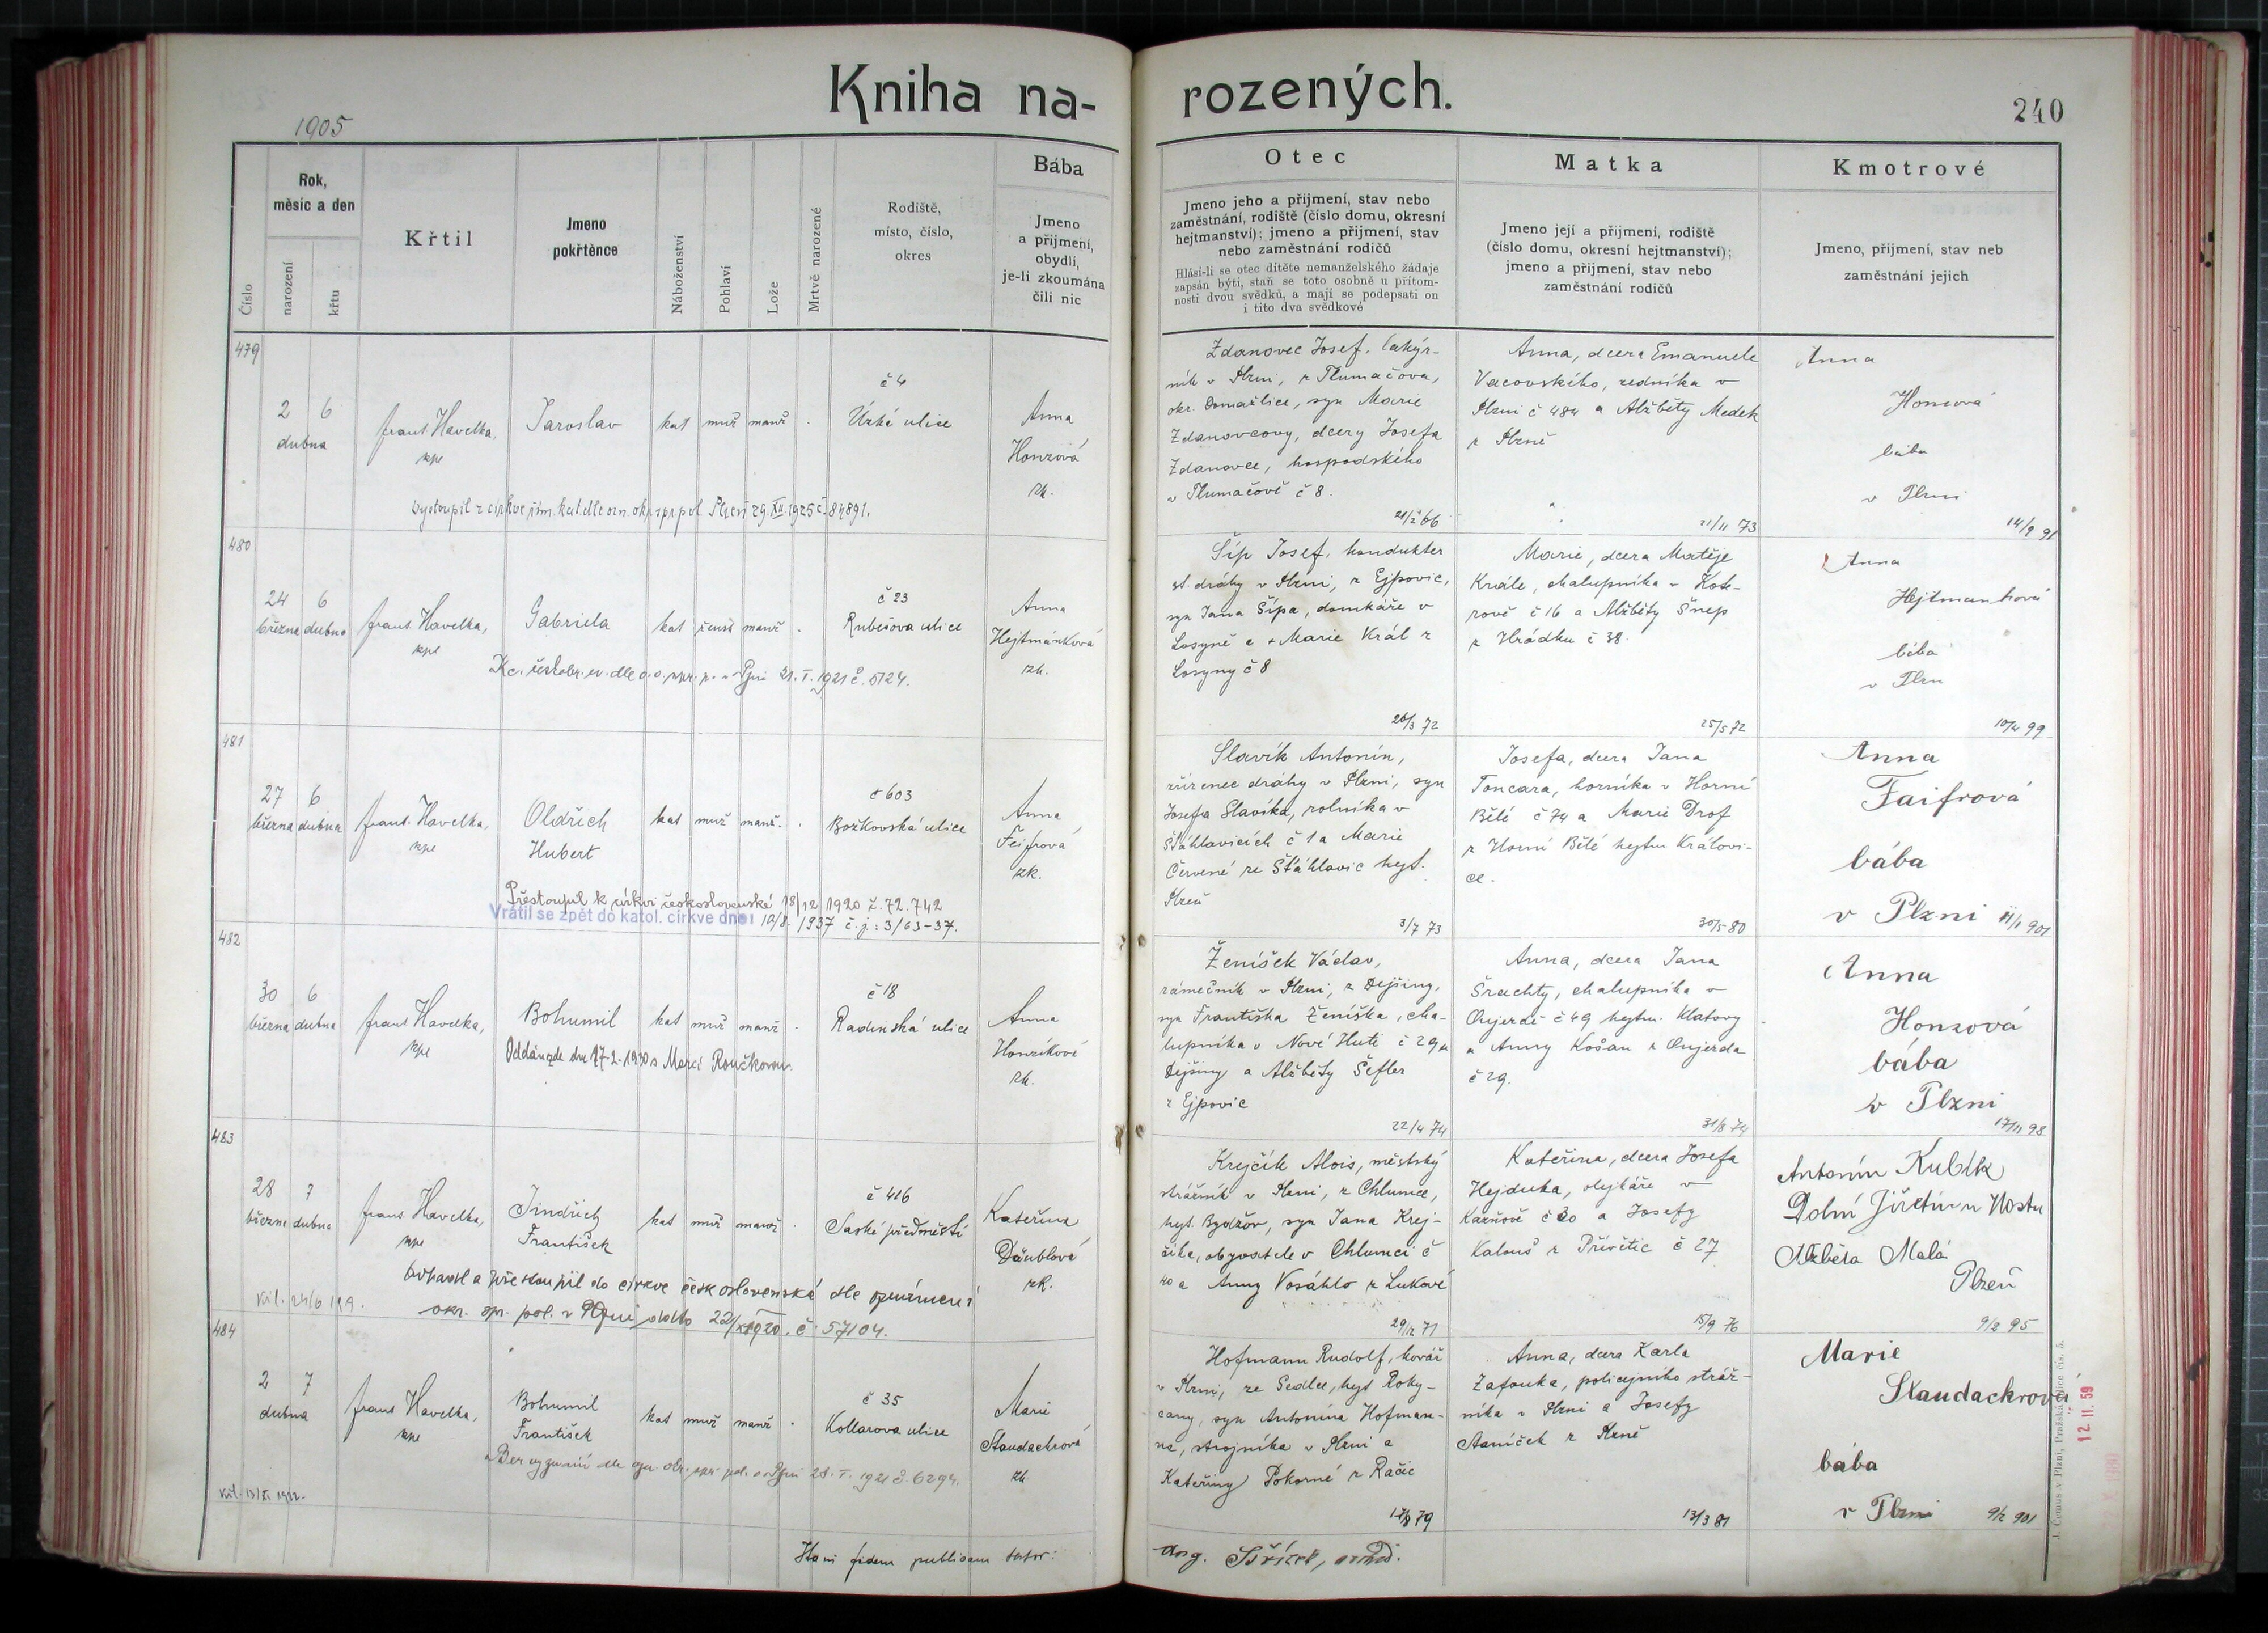 Kniha na-
rozených.
240
1905
Číslo
Rok,
měsíc a den
narození
křtu
Křtil
Jmeno
pokřtěnce
Náboženství
Pohlaví
Lože
Mrtvě narozené
Rodiště,
místo, číslo,
okres
Bába
Jmeno
a přijmení,
obydlí,
je-li zkoumána
čili nic
Otec
Jmeno jeho a přijmení, stav nebo
zaměstnání, rodiště (číslo domu, okresní
hejtmanství); jmeno a přijmení, stav
nebo zaměstnání rodičů
Hlásí-li se otec dítěte nemanželského žádaje
zapsán býti, staň se toto osobně u přítom-
nosti dvou svědků, a mají se podepsati on
i tito dva svědkové
Matka
Jmeno její a přijmení, rodiště
(číslo domu, okresní hejtmanství);
jmeno a přijmení, stav nebo
zaměstnání rodičů
Kmotrové
Jmeno, přijmení, stav neb
zaměstnání jejich
479
2 6
dubna
frant. Havelka,
kpl
Jaroslav
kat muž manž .
č 4
Úzká ulice
Anna
Honzová
zk.
vystoupil z církve řím. kat. dle ozn. okr. spr. pol. Plzeň 29. XII. 1925 č. 84891.
Zdanovec Josef,
ník v Plzni, z Tlumačova,
okr. Domažlice, syn Marie
Zdanovcovy, dcery Josefa
Zdanovce, hospodského
v Tlumačově č 8.
Anna, dcera Emanuele
Vacovského,ředníka v
Plzni č 484 a Alžběty Medek
z Plzně
21/11 73
Anna
Honsová
bába
v Plzni
14/9 91
480
24 6
března dubna
frant. Havelka,
kpl
Gabriela
kat žensk manž .
č 23
Rubešova ulice
Anna
Hejtmánková
zk.
K c. českobr. ev. dle o. o. spr. p. v Plzni 21. I. 1921 č. 5124.
Šíp Josef, kondukter
st. dráhy v Plzni, z Ejpovic,
syn Jana Šípa, domkáře v
Losyně a + Marie Král z
Losyny č 8
26/3 72
Marie, dcera Matěje
Krále, chalupníka v Kote-
rově č 16 a Alžběty Šnep
z Hrádku č 38.
25/5 72
Anna
Hejtmanková
bába
v Plzn
10/4 99
481
27 6
března dubna
frant. Havelka,
kpl
Oldřich
Hubert
kat muž manž. .
č 603
Božkovská ulice
Anna
Feifrová
zk.
Přestoupil k církvi československé 18/12 1920 č. 72.742
Vrátil se zpět do katol. církve dne: 10/8. 1937 č. j.: 3/63-37.
Slavík Antonín,
zřízenec dráhy v Plzni, syn
Josefa Slavíka, rolníka v
Šťáhlavicích č 1 a Marie
Červené ze Šťáhlavic hejt.
Plzeň
3/7 73
Josefa, dcera Jana
Toncara, horníka v Horní
Bělé č 74 a Marie Drof
z Horní Bělé hejtm Královi-
ce.
30/5 80
Anna
Faifrová
bába
v Plzni
482
30 6
března dubna
frant Havelka,
kpl
Bohumil
kat muž manž .
č 18
Radinská ulice
Anna
Honzíková
zk.
Oddán zde dne 17-2-1930 s Marií Roučkovou.
Ženíšek Václav,
zámečník v Plzni, z Dejšiny,
syn Františka Ženíška, cha-
lupníka v Nové Huti č 29 u
Dejšiny a Alžběty Šefler
z Ejpovic
22/4 74
Anna, dcera Jana
Šrachty, chalupníka v
Oujezdě č 49 hejtm. Klatovy
a Anny Košan z Oujezda
č 29.
31/8 74
Anna
Honsová
bába
v Plzni
17/11 98
483
28 7
března dubna
frant Havelka,
kpl
Jindřich
František
kat muž manž .
č 416
Saské předměstí
Kateřina
Däublová
zk.
Odpadl a přestoupil do církve československé dle oznámení
okr. spr. pol. v Plzni ddto 22/XI 1920. č. 57104.
Krejčík Alois, městský
strážník v Plzni, z Chlumce,
hejt. Bydžov, syn Jana Krej-
číka, obyvatele v Chlumci č
40 a Anny Vosáhlo z Lukové
29/12 71
Kateřina, dcera Josefa
Hejduka, olejkáře v
Kažňově č 30 a Josefy
Kalous z Přívětic č 27
15/9 76
Antonín Kubík
Dolní Jiřetín u Mostu
Alžběta Malá
Plzeň
9/2 95
484
2 7
dubna
frant Havelka,
kpl
Bohumil
František
kat muž manž .
č 35
Kollarova ulice
Marie
Staudachrová
zk
Bez vyznání dle ozn. okr. spr. pol. v Plzni 28. I. 1921 č. 6294.
Hofmann Rudolf, kovář
v Plzni, ze Sedlce, hejt Roky-
cany, syn Antonína Hofman-
na, strojníka v Plzni a
Kateřiny Pokorné z Račic
Anna, dcera Karla
Zafouka, policejního stráž-
níka v Plzni a Josefy
Staníček z Plzně
13/3 81
Marie
Staudachrová
bába
v Plzni
9/2 901
Hanc fidem publicam testor:
12 II. 59
J. Čemus v Plzni, Pražská ulice čís. 5.